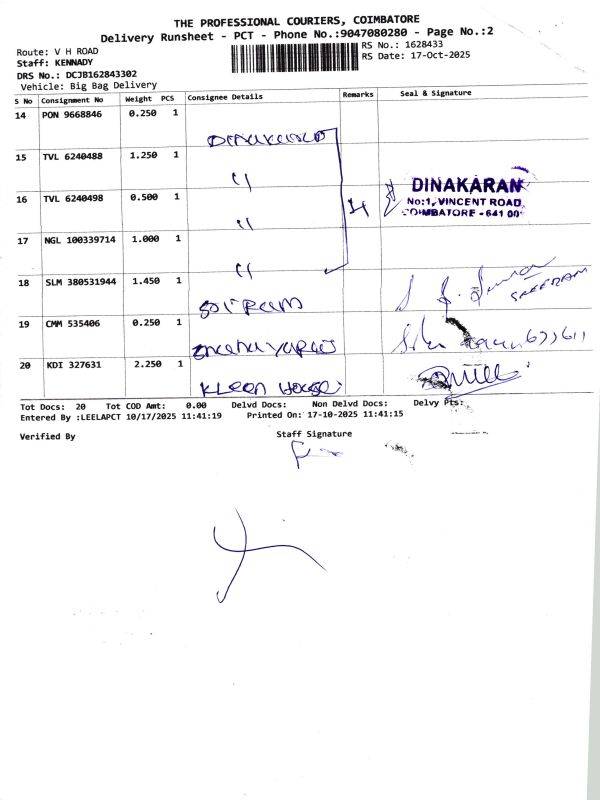 THE PROFESSIONAL COURIERS, COIMBATORE
Delivery Runsheet - PCT - Phone No.:9047080280 - Page No.:2
Route: V H ROAD
RS No.: 1628433
Staff: KENNADY
RS Date: 17-Oct-2025
DRS No.: DCJB162843302
Vehicle: Big Bag Delivery
S No Consignment No Weight PCS Consignee Details Remarks Seal & Signature
14 PON 9668846 0.250 1
15 TVL 6240488 1.250 1 "
16 TVL 6240498 0.500 1 "
DINAKARAN
No:1, VINCENT ROAD
COIMBATORE - 641 00
17 NGL 100339714 1.000 1 "
18 SLM 380531944 1.450 1 SriRam SREERAM
19 CMM 535406 0.250 1
20 KDI 327631 2.250 1 KLeen House
Tot Docs: 20 Tot COD Amt: 0.00 Delvd Docs: Non Delvd Docs: Delvy Pts:
Entered By :LEELAPCT 10/17/2025 11:41:19 Printed On: 17-10-2025 11:41:15
Verified By Staff Signature